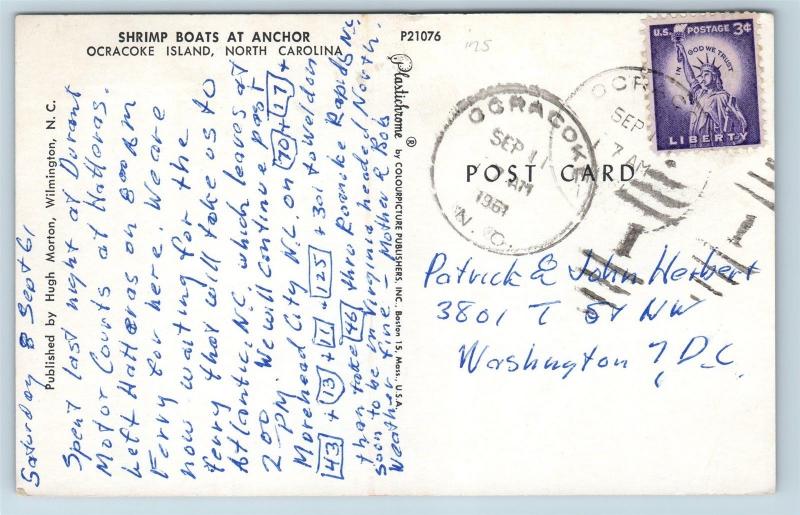 SHRIMP BOATS AT ANCHOR
OCRACOKE ISLAND, NORTH CAROLINA
P21076
Published by Hugh Morton, Wilmington, N. C.
Plastichrome ® by COLOURPICTURE PUBLISHERS, INC., Boston 15, Mass., U.S.A.
Saturday 8 Sept 61
Spent last night at Durant
Motor Courts at Hatteras.
Left Hatteras on 8:00 AM
Ferry for here. We are
now waiting for the
ferry that will take us to
Atlantic, N.C. which leaves at
2:00 PM. We will continue past
Morehead City N.C. on 70 + 17 +
43 + 13 + 11 + 125 + 301 to Weldon
than take 46 thru Roanoke Rapids N.C.
soon to be in Virginia headed North.
Weather fine - Mother & Bob
OCRACOKE
SEP 11
AM
1961
N. C.
OCR
SEP
7 AM
U.S. POSTAGE 3¢
IN GOD WE TRUST
LIBERTY
POST CARD
Patrick & John Herbert
3801 T St NW
Washington 7, D.C.